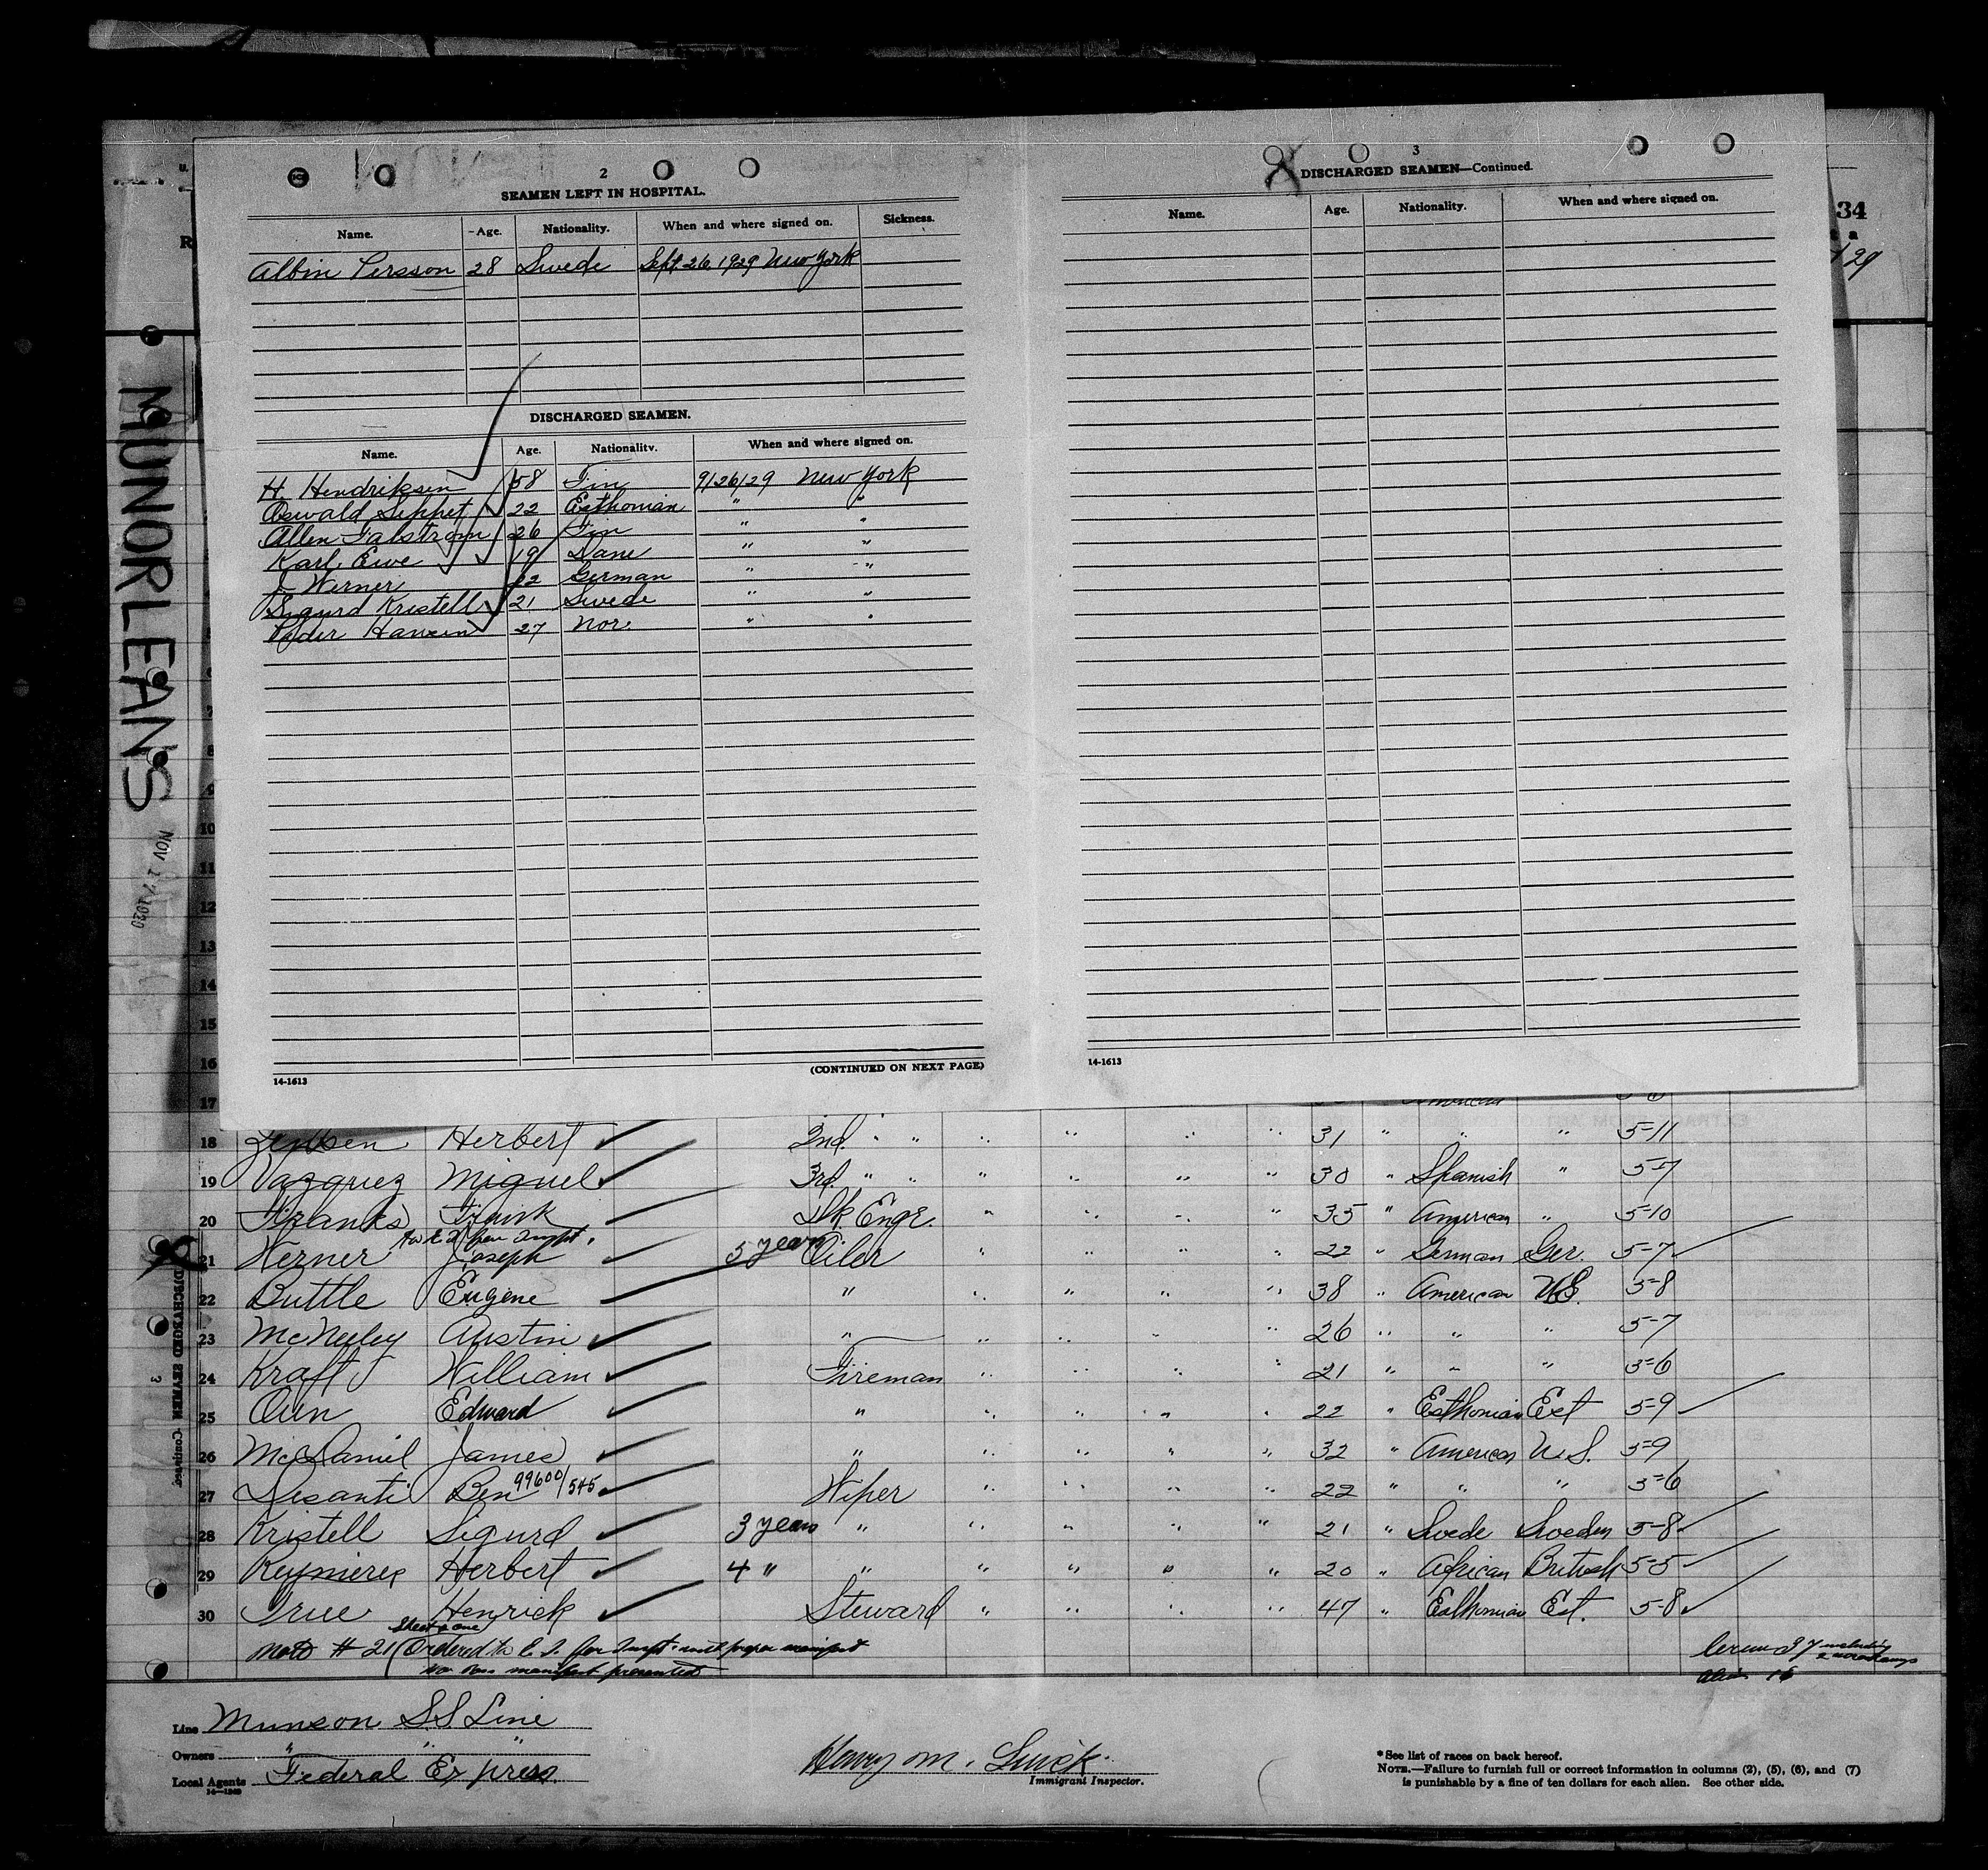 2
SEAMEN LEFT IN HOSPITAL.
Name. Age. Nationality. When and where signed on. Sickness.
Albin Persson 28 Swede Sept 26, 1929 New York
DISCHARGED SEAMEN.
Name. Age. Nationality. When and where signed on.
H. Hendriksen 58 Fin 9/26/29 New York
Oswald Sippet 22 Esthonian " "
Allen Falstrom 26 Fin " "
Karl Ewe 19 Dane " "
J Werner 22 German " "
Sigurd Kristell 21 Swede " "
Peder Hansen 27 Nor. " "
14-1613
(CONTINUED ON NEXT PAGE)
3
DISCHARGED SEAMEN—Continued.
Name. Age. Nationality. When and where signed on.
14-1613
34
29
MUNORLEANS
NOV 27
7
8
9
10
11
12
13
14
15
16
17 American
18 Jensen Herbert 2nd " " " " " " 31 " " " 5-11
19 Vazquez Miguel 3rd " " " " " " 30 " Spanish " 5-7
20 Franks Frank Dk. Engr. " " " " 35 " American " 5-10
21 Werner Joseph 5 years Oiler " " " " 22 " German Ger. 5-7
22 Buttle Eugene " " " " " 38 " American U.S. 5-8
23 McNeeley Austin " " " " " 26 " " " 5-7
24 Kraft William Fireman " " " " 21 " " " 5-6
25 Oun Edward " " " " " 22 " Esthonian Est 5-9
26 McDaniel James " " " " " 32 " American U.S. 5-9
27 Desanti Ben 99600/545 Wiper " " " " 22 " " " 5-6
28 Kristell Sigurd 3 years " " " " " 21 " Swede Sweden 5-8
29 Reymieres Herbert 4 " " " " " " 20 " African British 5-5
30 True Henrick Steward " " " " 47 " Esthonian Est. 5-8
Note # 21 (Ordered to E. I. for Inspt. with proper manifest
manifest presented
Crew 37 including
Alien 16
Line Munson S.S Line
Owners " " "
Local Agents Federal Express.
14—1240
Henry M.
Immigrant Inspector.
*See list of races on back hereof.
NOTE.—Failure to furnish full or correct information in columns (2), (5), (6), and (7)
is punishable by a fine of ten dollars for each alien. See other side.